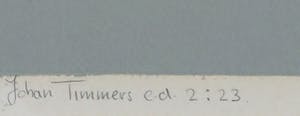 Johan Timmers c.d. 2:23